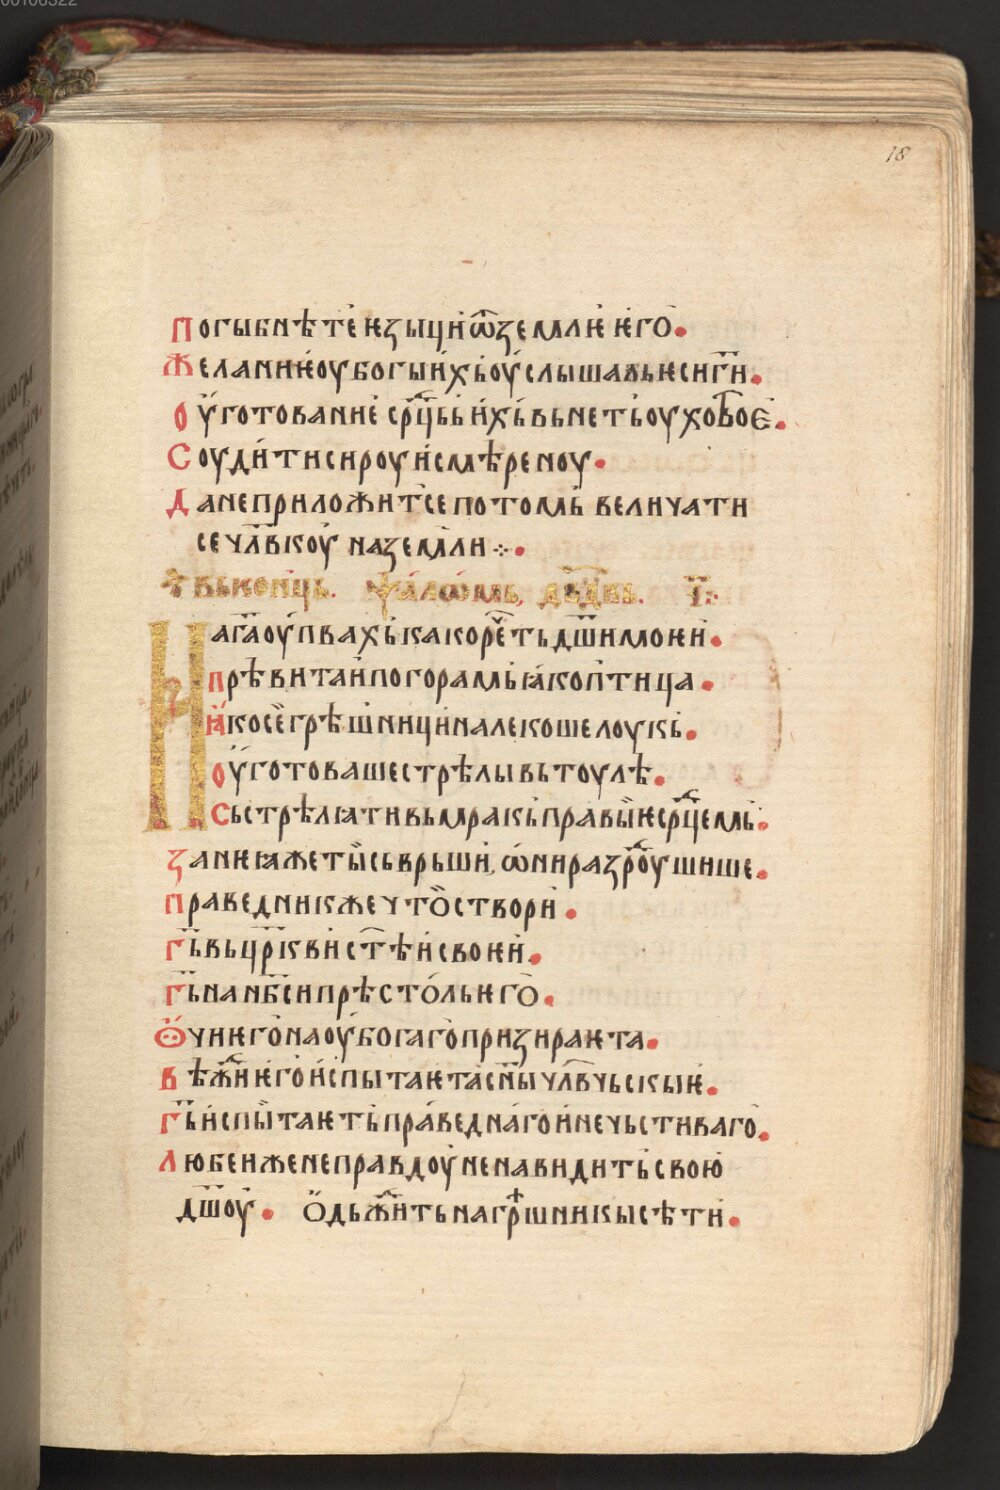 00106322
18
Погыбнѣте ѥзыци ѿ землѥ ѥго.
Желаниѥ оубогыихь оуслышаль ѥси г҃и.
Оуготование ср҃цьь ихь вьнеть оухо твоѥ.
Соудити сироу и смѣреноу.
Да не приложит се потомь величати
се чл҃вкоу на земли ⁘
Вь конць. Ѱаломь, дв҃двь. І҃:
На г҃а оупвахь како реч҇еть д҃ши моѥи.
прѣвитаи по горамь ꙗко птица.
Ꙗко се грѣшници налекоше лоукь.
Оуготоваше стрѣлы вь тоулѣ.
Сьстрѣлꙗти вь мракь правыѥ ср҃цемь.
Занѥ ꙗже ты сьврьши, ѡни разроушише.
Праведник же что створи.
Г҃ь вь цр҃кви ст҃ѣи своѥи.
Г҃ь на нб҃си прѣстоль ѥго.
Ѻчи ѥго на оубогаго призираѥта.
Вѣжди ѥго испытаѥта сн҃ы чл҃вчьскыѥ.
Г҃ь испытаѥть праведнаго и нечьстиваго.
Любеи же неправдоу ненавидить свою
д҃шоу. Одьждить на грѣшникы сѣти.